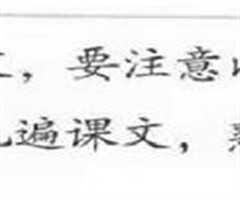 ，要注意
遍课文，